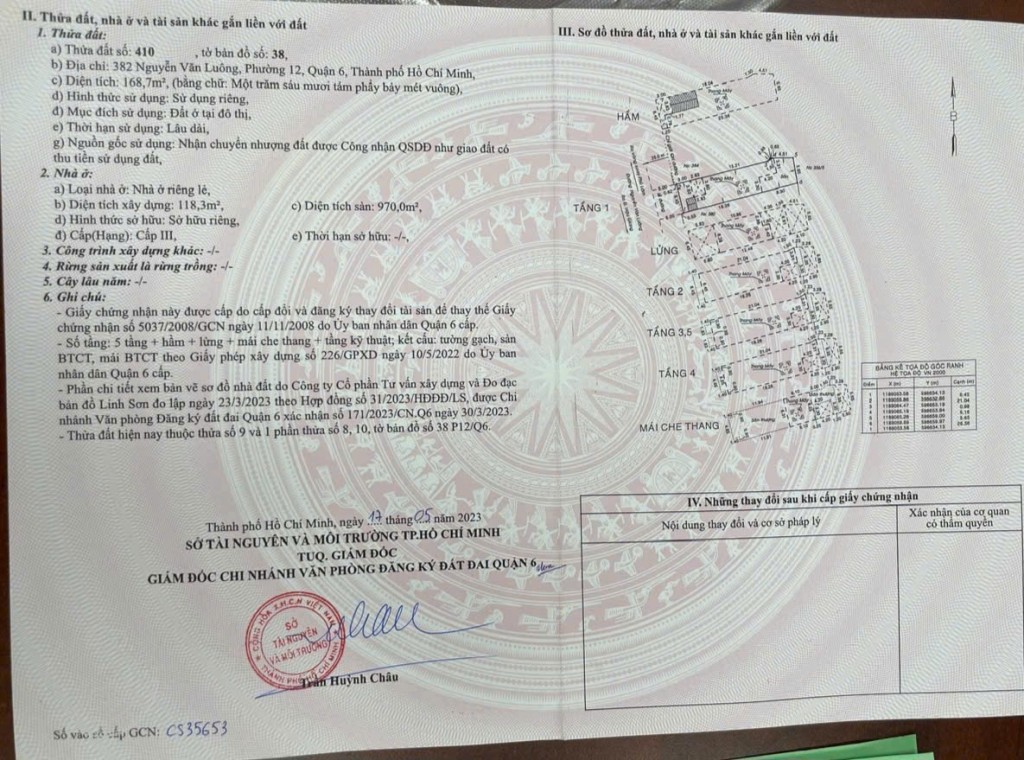 II. Thửa đất, nhà ở và tài sản khác gắn liền với đất
1. Thửa đất:
a) Thửa đất số: 410 , tờ bản đồ số: 38,
b) Địa chỉ: 382 Nguyễn Văn Luông, Phường 12, Quận 6, Thành phố Hồ Chí Minh,
c) Diện tích: 168,7m², (bằng chữ: Một trăm sáu mươi tám phẩy bảy mét vuông),
d) Hình thức sử dụng: Sử dụng riêng,
đ) Mục đích sử dụng: Đất ở tại đô thị,
e) Thời hạn sử dụng: Lâu dài,
g) Nguồn gốc sử dụng: Nhận chuyển nhượng đất được Công nhận QSDĐ như giao đất có
thu tiền sử dụng đất,
2. Nhà ở:
a) Loại nhà ở: Nhà ở riêng lẻ,
b) Diện tích xây dựng: 118,3m², c) Diện tích sàn: 970,0m²,
d) Hình thức sở hữu: Sở hữu riêng,
đ) Cấp(Hạng): Cấp III, e) Thời hạn sở hữu: -/-,
3. Công trình xây dựng khác: -/-
4. Rừng sản xuất là rừng trồng: -/-
5. Cây lâu năm: -/-
6. Ghi chú:
- Giấy chứng nhận này được cấp do cấp đổi và đăng ký thay đổi tài sản để thay thế Giấy
chứng nhận số 5037/2008/GCN ngày 11/11/2008 do Ủy ban nhân dân Quận 6 cấp.
- Số tầng: 5 tầng + hầm + lửng + mái che thang + tầng kỹ thuật; kết cấu: tường gạch, sàn
BTCT, mái BTCT theo Giấy phép xây dựng số 226/GPXD ngày 10/5/2022 do Ủy ban
nhân dân Quận 6 cấp.
- Phần chi tiết xem bản vẽ sơ đồ nhà đất do Công ty Cổ phần Tư vấn xây dựng và Đo đạc
bản đồ Linh Sơn đo lập ngày 23/3/2023 theo Hợp đồng số 31/HĐĐĐ/LS, được Chi
nhánh Văn phòng Đăng ký đất đai Quận 6 xác nhận số 171/2023/CN.Q6 ngày 30/3/2023.
- Thửa đất hiện nay thuộc thửa số 9 và 1 phần thửa số 8, 10, tờ bản đồ số 38 P12/Q6.
Thành phố Hồ Chí Minh, ngày 17 tháng 05 năm 2023
SỞ TÀI NGUYÊN VÀ MÔI TRƯỜNG TP.HỒ CHÍ MINH
TUQ. GIÁM ĐỐC
GIÁM ĐỐC CHI NHÁNH VĂN PHÒNG ĐĂNG KÝ ĐẤT ĐAI QUẬN 6
CỘNG HÒA X.H.C.N VIỆT NAM
SỞ
TÀI NGUYÊN
VÀ MÔI TRƯỜNG
THÀNH PHỐ HỒ CHÍ MINH
Trần Huỳnh Châu
Số vào sổ cấp GCN: CS35653
III. Sơ đồ thửa đất, nhà ở và tài sản khác gắn liền với đất
B
HẦM
TẦNG 1
LỬNG
TẦNG 2
TẦNG 3,5
TẦNG 4
MÁI CHE THANG
BẢNG KÊ TỌA ĐỘ GÓC RANH
HỆ TỌA ĐỘ VN 2000
Điểm X (m) Y (m) Cạnh (m)
IV. Những thay đổi sau khi cấp giấy chứng nhận
Nội dung thay đổi và cơ sở pháp lý
Xác nhận của cơ quan
có thẩm quyền